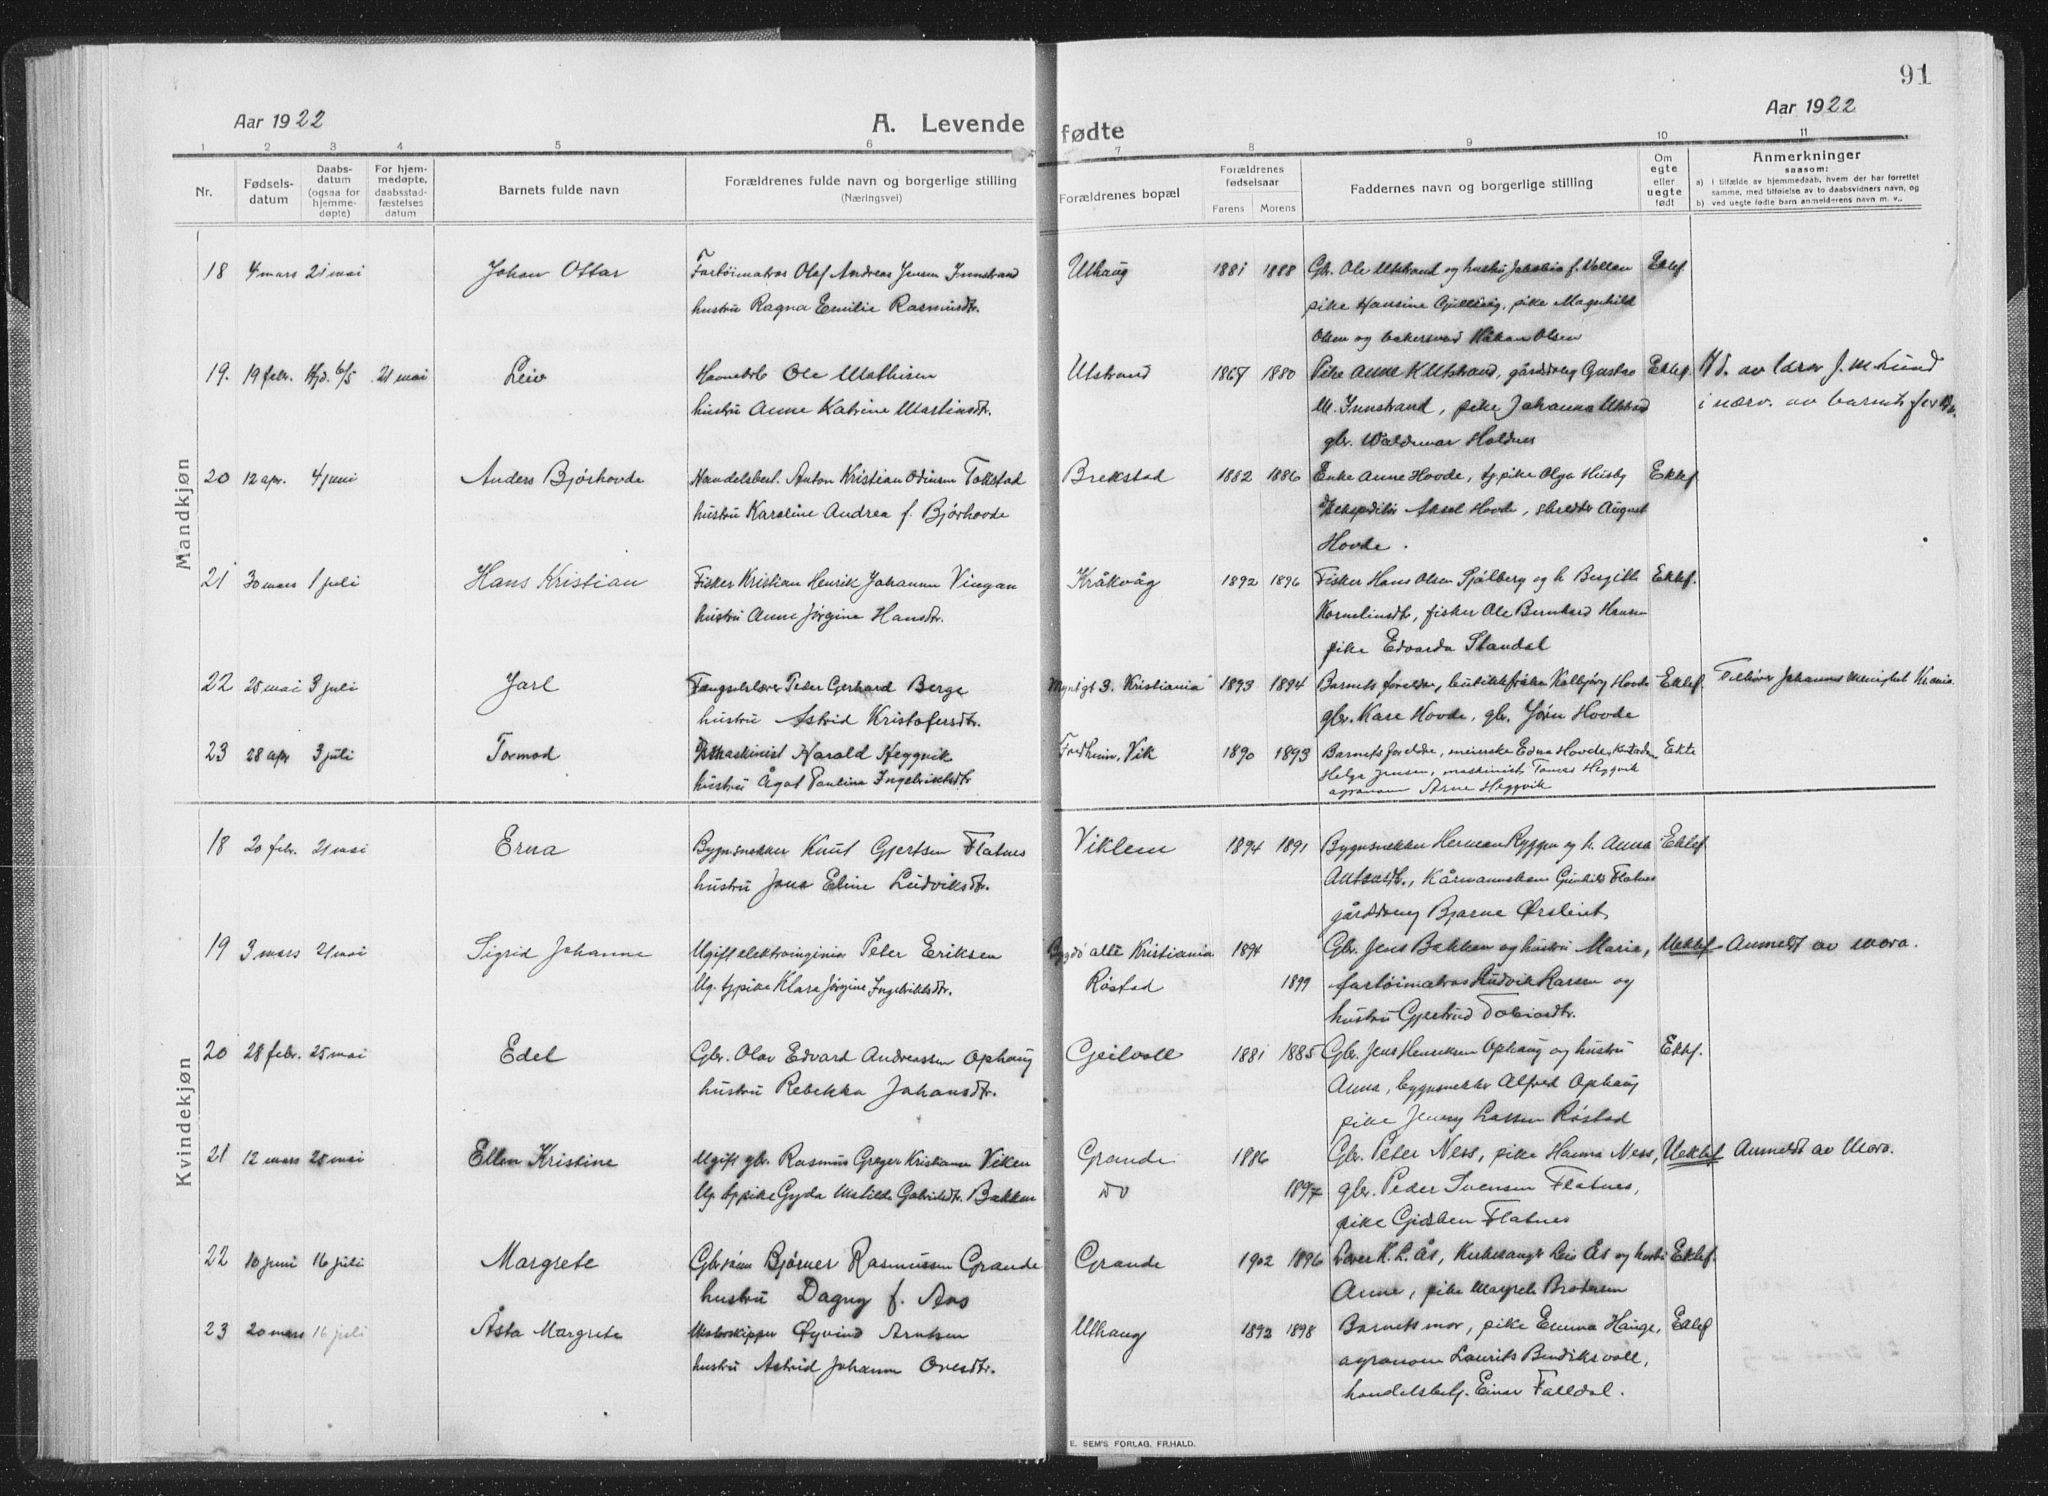 91
Aar 1922
A. Levende fødte
Aar 1922
1 2 3 4 5 6 7 8 9 10 11
Nr.
Fødsels-
datum
Daabs-
datum
(ogsaa for
hjemme-
døpte)
For hjem-
medøpte,
daabsstad-
fæstelses
datum
Barnets fulde navn
Forældrenes fulde navn og borgerlige stilling
(Næringsvei)
Forældrenes bopæl
Forældrenes
fødselsaar
Farens Morens
Faddernes navn og borgerlige stilling
Om
egte
eller
uegte
født
Anmerkninger
saasom:
a) i tilfælde av hjemmedaab, hvem der har forrettet
samme, med tilføielse av to daabsvidners navn, og
b) ved uegte fødte barn anmelderens navn m. v..
Mandkjøn
18 4 mars 21 mai Johan Ottar Fartøimatros Olaf Andreas Jensen Innstrand Uthaug 1881 1888 Gbr. Ole Utstrand og hustru Jakobia f. Vollan Ektef.
hustru Ragna Emilie Rasmusdtr. pike Hansine Gjelsvig, pike Magnhild
Olsen og bakersvend Håkon Olsen
19. 19 febr. Hjd. 6/5 21 mai Leiv Ole Mathisen Utstrand 1867 1880 Pike Anne K Utstrand, gårddreng Gustav Ektef. Hd. av lærer J. M. Lund
hustru Anne Katrine Martinsdtr. M. Innstrand, pike Johanna Utstrand i nærv. av barnets for
gbr. Waldemar Holdnes
20 12 apr. 4 juni Anders Bjørhovde Handelsbest. Anton Kristian Odinsen Tokstad Brekstad 1882 1886 Enke Anne Hovde, tj.pike Olga Husby Ektef.
hustru Karoline Andrea f. Bjørhovde Ekspeditør Aksel Hovde, skredder August
Hovde.
21 30 mars 1 juli Hans Kristian Fisker Kristian Henrik Johansen Vingan Kråkvåg 1892 1896 Fisker Hans Olsen Sjölberg og h. Bergitte Ektef.
hustru Anne Jørgine Hansdtr. Kornelinsdtr, fisker Ole Berntsen Hansen
pike Edvarda Standal
22 25 mai 3 juli Jarl Peder Gerhard Berge Kristiania 1893 1894 Barnets foreldre, butikkfrøken Kolbjörg Hovde Ektef. Tilhører Johannes menighet Kr.ania.
hustru Astrid Kristofersdtr. gbr. Kåre Hovde, gbr. Jörn Hovde
23 28 apr 3 juli Tormod Harald Heggvik Fredheim, Vik 1890 1893 Barnets foreldre, meierske Edna Hovde, Ekte
hustru Ågot Pauline Ingebriktsdtr Helga Jensen, maskinist Tomas Heggvik
agronom Arne Heggvik
Kvindekjøn
18 20 febr. 21 mai Erna Bygnsnekker Knut Gjertsen Flatnes Viklem 1894 1891 Bygnsnekker Herman Ryggen og h. Anna Ektef
hustru Jona Eline Ludviksdtr. Antonsdtr., Kårmannskone Gunhild Flatnes
gårddreng Bjarne Ørsleint
19 3 mars 21 mai Sigrid Johanne Ugift elektroingeniør Peter Eriksen Bygdö allé Kristiania 1894 Gbr. Jens Bakken og hustru Marie, Uektef Anmeldt av mora.
Ug. tj.pike Klara Jørgine Ingebriktsdtr. Røstad 1899 fartöimatros Ludvik Larsen og
hustru Gjertrud Tobiasdtr.
20 28 febr. 25 mai Edel Gbr. Olav Edvard Andreassen Ophaug Geilvoll 1881 1885 Gbr. Jens Henriksen Ophaug og hustru Ektef.
hustru Rebekka Johansdtr. Anna, bygnsnekker Alfred Ophaug
pike Jenny Larsen Røstad
21 12 mars 28 mai Ellen Kristine Ugift gbr. Rasmus Greger Kristiansen Viken Grande 1886 Gbr. Peter Ness, pike Hanna Ness, Uektef Anmeldt av Mora.
Ug tj.pike Gyda Matilde Gabrielsdtr. Bakken do 1897 gbr. Peder Svensen Flatnes,
pike Gidsken Flatnes
22 10 juni 16 juli Margrete Gbrsønn Bjørner Rasmussen Grande Grande 1902 1896 Lærer K. L. Ås, Kirkesanger Leiv Ås og hustru Ektef.
hustru Dagny f. Aas Anne, pike Margrete Brodersen
23 20 mars 16 juli Åsta Margrete Øyvind Arntsen Uthaug 1892 1898 Barnets mor, pike Emma Hauge, Ektef
hustru Astrid Johanne Ovesdtr. agronom Laurits Bendiksvoll,
handelsbetj. Einar Falldal.
E. SEM'S FORLAG, FR.HALD.